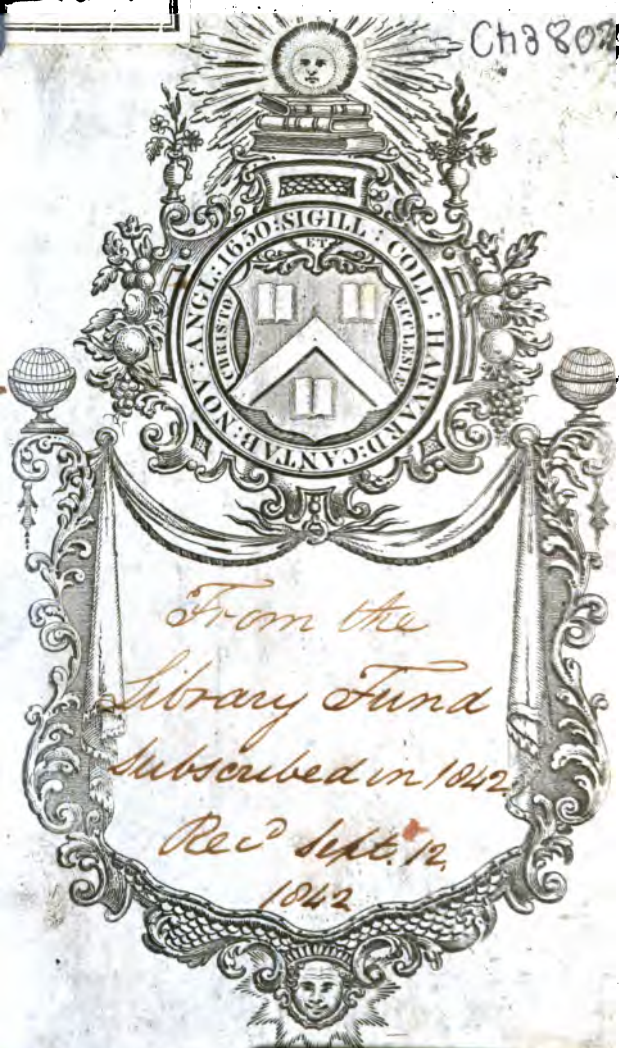 SIGILL : COLL : HARVARD : CANTAB : NOV : ANGL : 1650 :
CHRISTO
ET
ECCLESIÆ
From the
Library Fund
Subscribed in 1842.
Rec'd Sept. 12,
1842